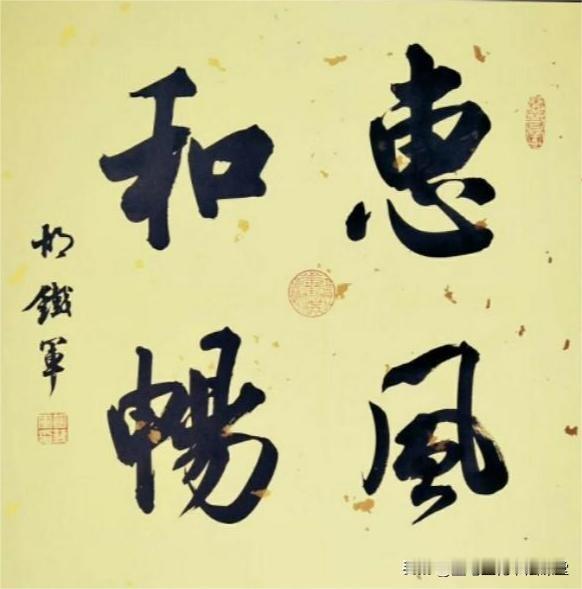 惠風
和暢
胡鐵軍